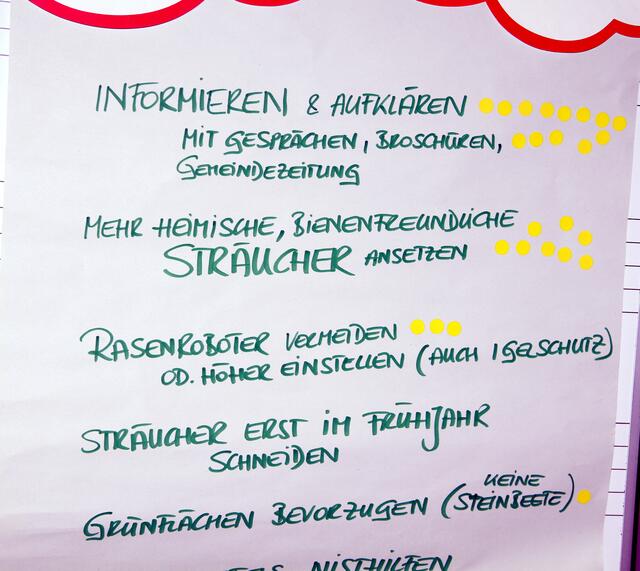 INFORMIEREN & AUFKLÄREN
MIT GESPRÄCHEN, BROSCHÜREN,
GEMEINDEZEITUNG
MEHR HEIMISCHE, BIENENFREUNDLICHE
STRÄUCHER ANSETZEN
RASENROBOTER VERMEIDEN
OD. HÖHER EINSTELLEN (AUCH IGELSCHUTZ)
STRÄUCHER ERST IM FRÜHJAHR
SCHNEIDEN
GRÜNFLÄCHEN BEVORZUGEN (KEINE
STEINBEETE)
NISTHILFEN